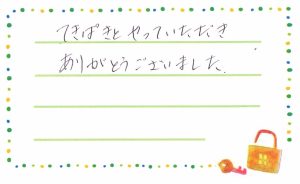 てきぱきとやっていただき
ありがとうございました.